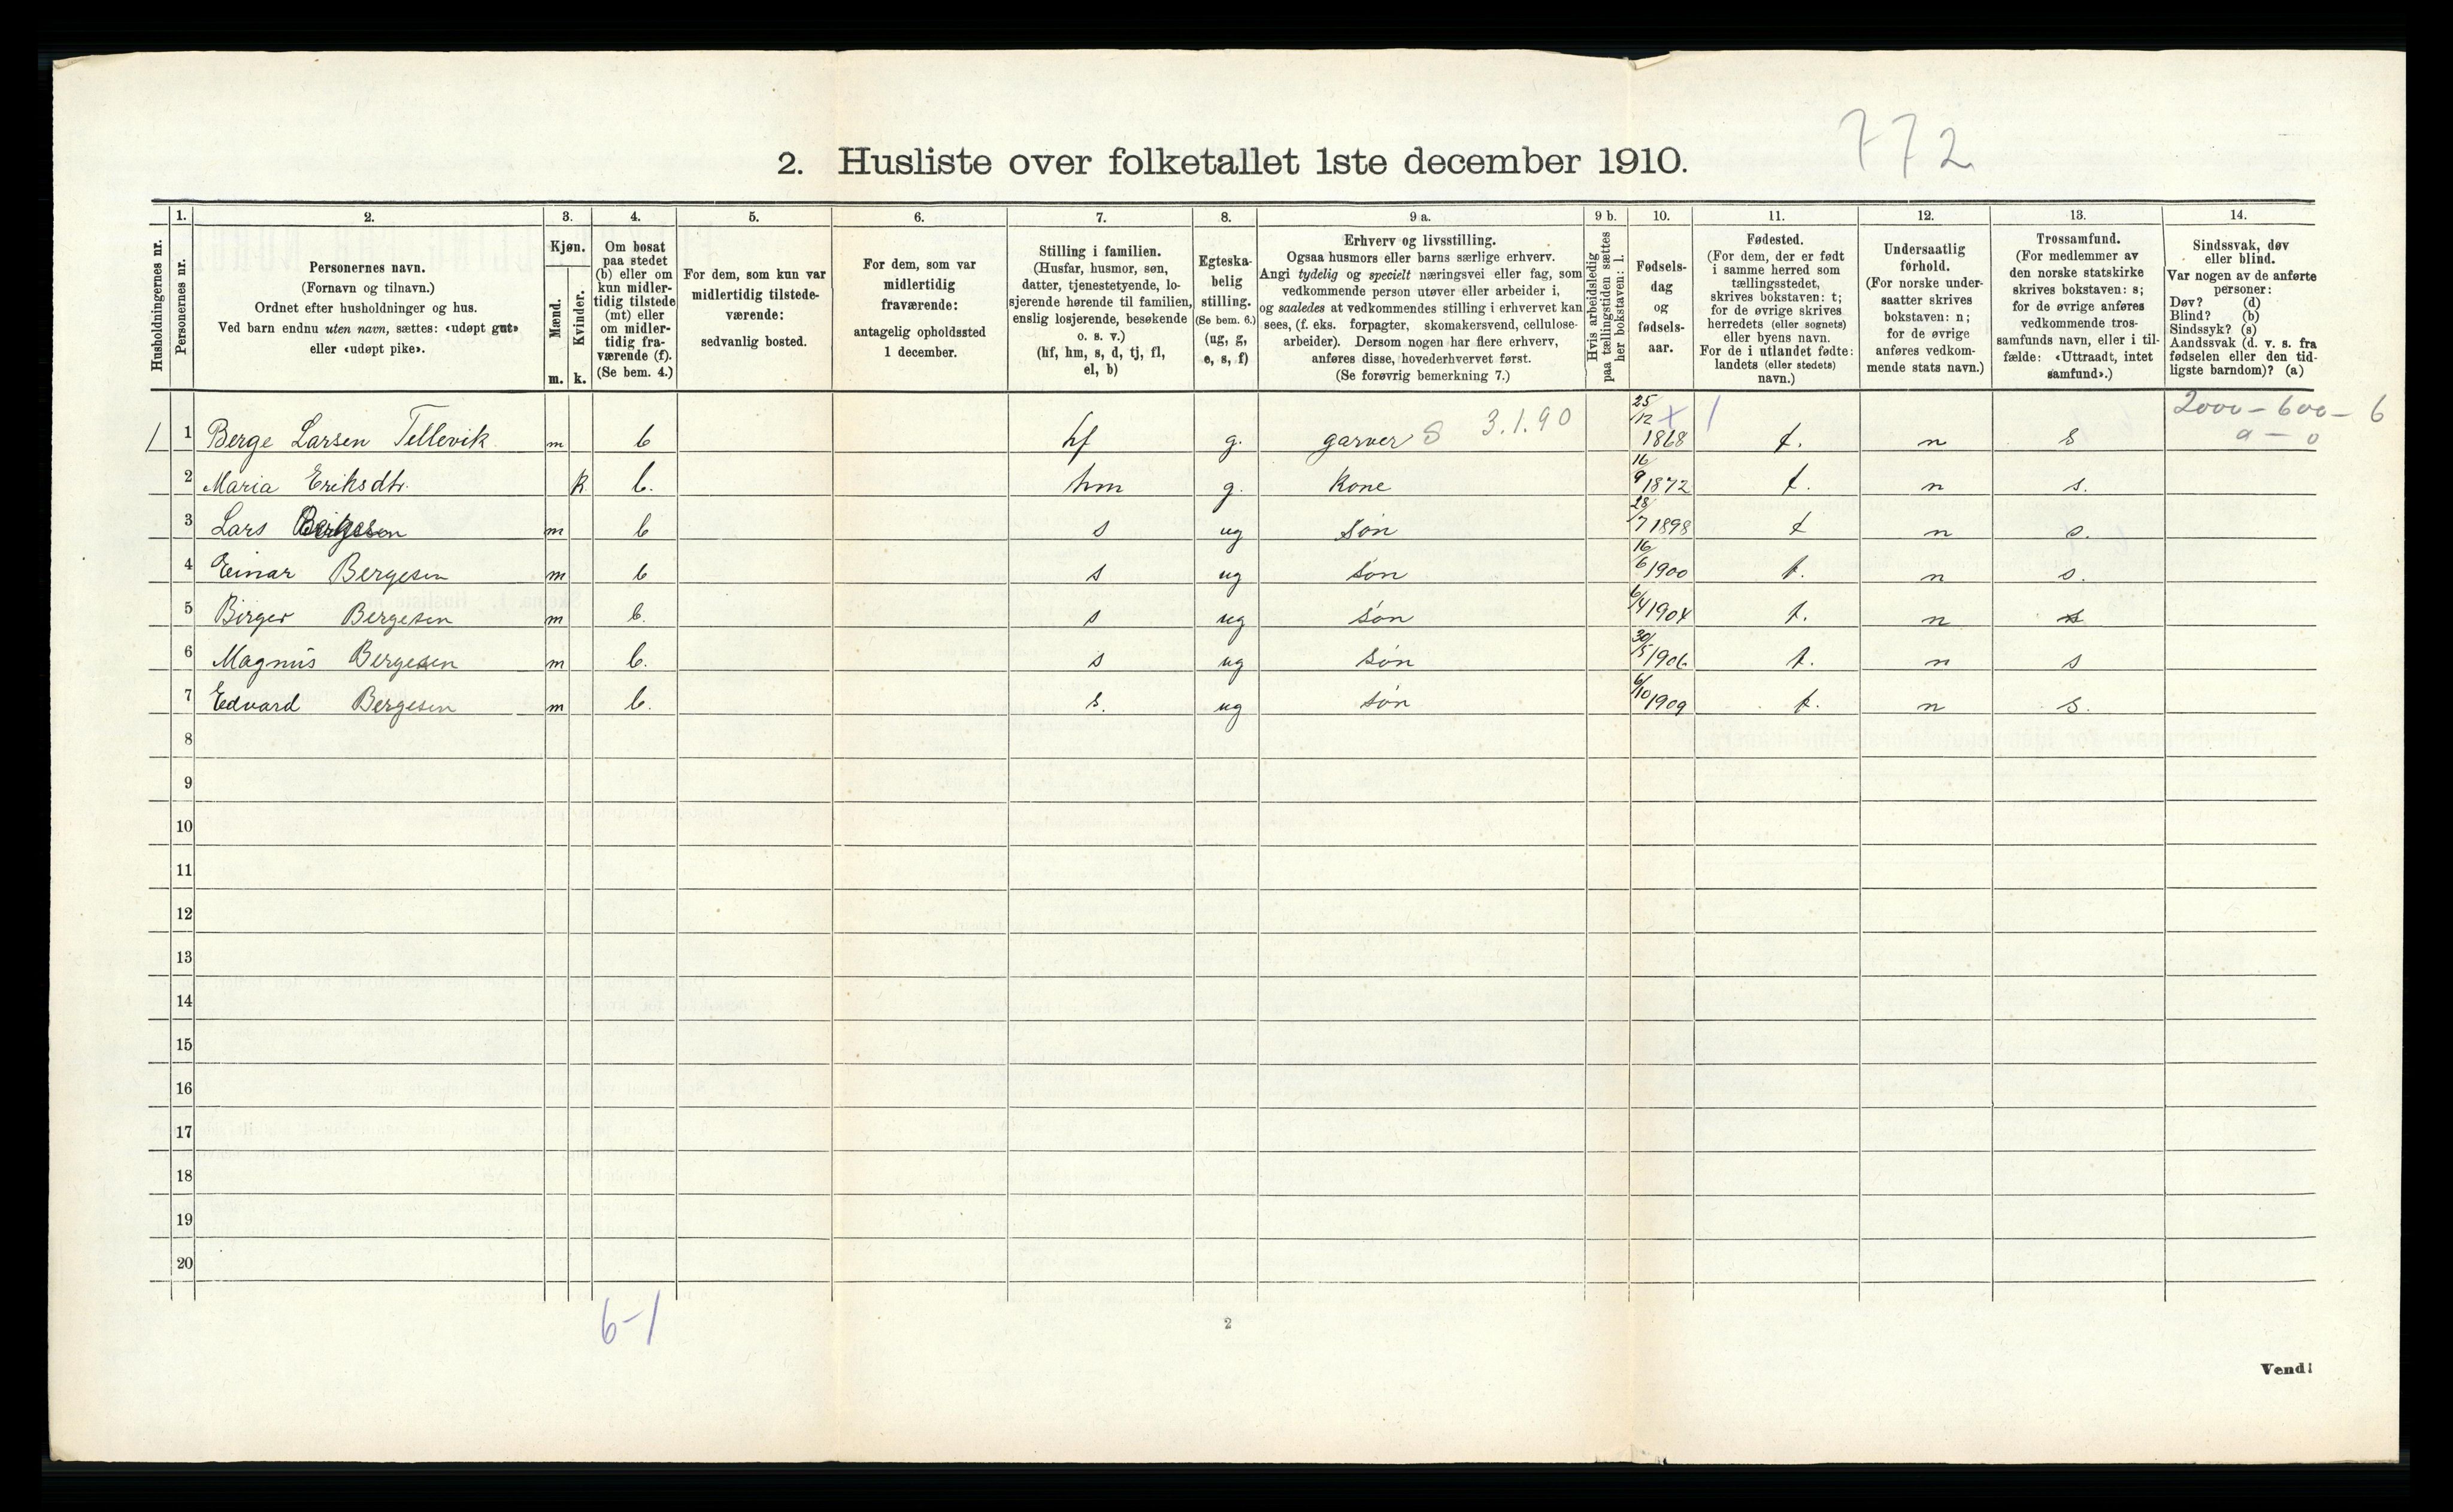 772
2. Husliste over folketallet 1ste december 1910.
Husholdningernes nr.
1. Personernes nr.
2. Personernes navn.
(Fornavn og tilnavn.)
Ordnet efter husholdninger og hus.
Ved barn endnu uten navn, sættes: «udøpt gut»
eller «udøpt pike».
3. Kjøn.
Mænd. m.
Kvinder. k.
4. Om bosat
paa stedet
(b) eller om
kun midler-
tidig tilstede
(mt) eller
om midler-
tidig fra-
værende (f).
(Se bem. 4.)
5. For dem, som kun var
midlertidig tilstede-
værende:
sedvanlig bosted.
6. For dem, som var
midlertidig
fraværende:
antagelig opholdssted
1 december.
7. Stilling i familien.
(Husfar, husmor, søn,
datter, tjenestetyende, lo-
sjerende hørende til familien,
enslig losjerende, besøkende
o. s. v.)
(hf, hm, s, d, tj, fl,
el, b)
8. Egteska-
belig
stilling.
(Se bem. 6.)
(ug, g,
e, s, f)
9 a. Erhverv og livsstilling.
Ogsaa husmors eller barns særlige erhverv.
Angi tydelig og specielt næringsvei eller fag, som
vedkommende person utøver eller arbeider i,
og saaledes at vedkommendes stilling i erhvervet kan
sees, (f. eks. forpagter, skomakersvend, cellulose-
arbeider). Dersom nogen har flere erhverv,
anføres disse, hovederhvervet først.
(Se forøvrig bemerkning 7.)
9 b. Hvis arbeidsledig
paa tællingstiden sættes
her bokstaven: l.
10. Fødsels-
dag
og
fødsels-
aar.
11. Fødested.
(For dem, der er født
i samme herred som
tællingsstedet,
skrives bokstaven: t;
for de øvrige skrives
herredets (eller sognets)
eller byens navn.
For de i utlandet fødte:
landets (eller stedets)
navn.)
12. Undersaatlig
forhold.
(For norske under-
saatter skrives
bokstaven: n;
for de øvrige
anføres vedkom-
mende stats navn.)
13. Trossamfund.
(For medlemmer av
den norske statskirke
skrives bokstaven: s;
for de øvrige anføres
vedkommende tros-
samfunds navn, eller i til-
fælde: «Uttraadt, intet
samfund».)
14. Sindssvak, døv
eller blind.
Var nogen av de anførte
personer:
Døv? (d)
Blind? (b)
Sindssyk? (s)
Aandssvak (d. v. s. fra
fødselen eller den tid-
ligste barndom)? (a)
1 1 Berge Larsen Tellevik m b hf g. garver S 3.1.90 25/12 1868 t. n s 2000 – 600 – 6
a – 0
2 Maria Eriksdtr. k b. hm g. Kone 16/9 1872 t. n s.
3 Lars m b s ug søn 28/7 1898 t n s.
4 Einar Bergesen m b s ug søn 16/6 1900 t. n s.
5 Birger Bergesen m b. s ug søn 6/4 1904 t. n s
6 Magnus Bergesen m b. s ug søn 30/5 1906 t. n s
7 Edvard Bergesen m b. s. ug søn 6/10 1909 t. n s.
8
9
10
11
12
13
14
15
16
17
18
19
20
6-1
2
Vend!